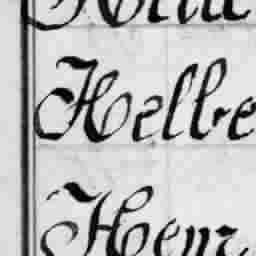 Helbe
Henr